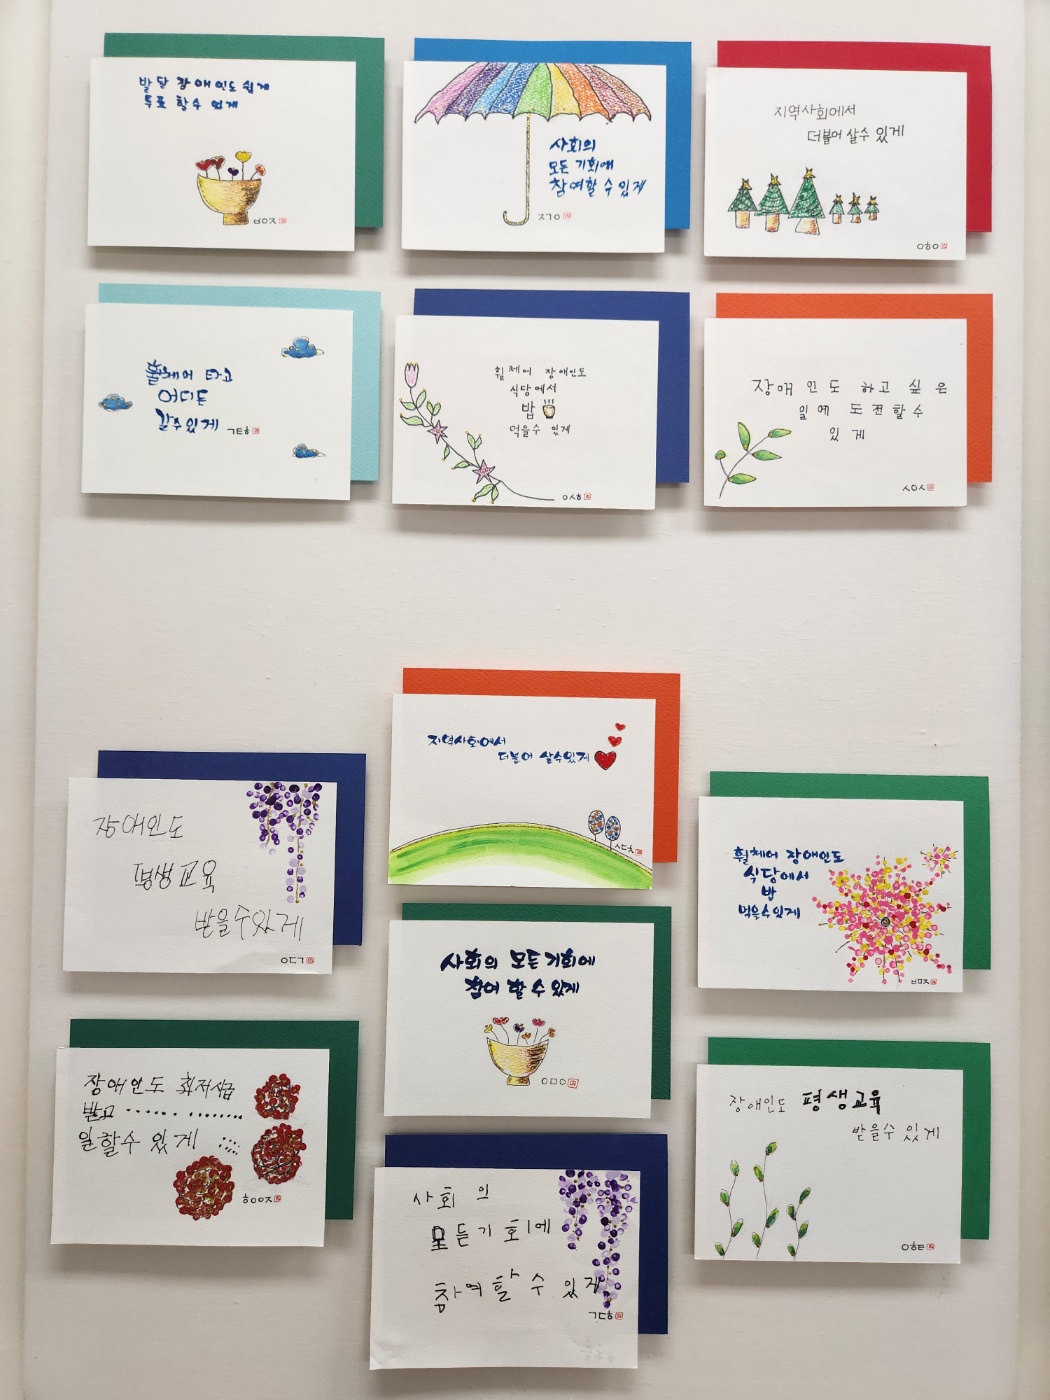 발달 장애인도 쉽게
투표 할수 있게
ㅂㅇㅈ
사회의
모든 기회에
참여할 수 있게
ㅈㄱㅇ
지역사회에서
더불어 살수 있게
ㅇㅎㅇ
휠체어 타고
어디든
갈수있게
ㄱㅌㅎ
휠체어 장애인도
식당에서
밥
먹을수 있게
ㅇㅅㅎ
장애인도 하고싶은
일에 도전할수
있게
ㅅㅇㅅ
지역사회에서
더불어 살수있게
ㅅㄷㅊ
장애인도
평생교육
받을수있게
ㅇㄷㄱ
휠체어 장애인도
식당에서
밥
먹을수있게
ㅂㅁㅈ
사회의 모든 기회에
참여 할 수 있게
ㅇㅁㅇ
장애인도 최저시급
받고 ...... ........
일할수 있게
ㅎㅇㅇㅈ
장애인도 평생교육
받을수 있게
ㅇㅎㅌ
사회의
모든기회에
참여할수 있게
ㄱㄷㅎ